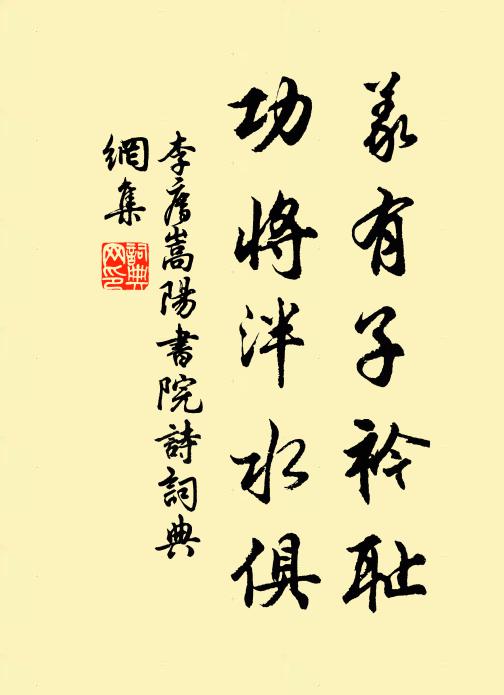 義有子衿耻
功將泮水俱
李廌嵩陽書院詩詞典
網集
詞典
网印